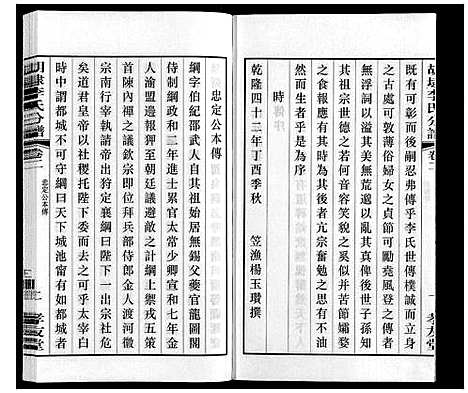 既有可彰而後嗣忍弗傳乎李氏世傳樸誠而立身
之古處可敦勤儉可風婦女之貞節俯仰愧登之傳者
無浮詞以溢其美無荒遯以沒其善於以後世子孫知
其祖宗世德之若何音容笑貌之奚似并苦節孀婺
之不容泯滅於後者乎是後之讀者有亢宗奮勉之思而有忝
然而生者乎是為序
時
乾隆四十二年丁酉季秋 笠漁楊玉瓚撰
忠定公本傳
綱字伯紀邵武人自其祖始居無錫父夔官龍圖閣
侍制綱政和二年進士累官太常少卿宣和七年金
人渝盟邊報至朝廷議避敵之計綱上禦戎五策
首陳內禪之議欽宗即位拜兵部侍郎金人渡河徽
宗南行宰執請帝出襄鄧綱曰陛下一出宗社危
矣道君皇帝以社稷托陛下委而去之可乎太宰白
時中謂都城不可守綱曰天下城池甯有如都城者
胡埭李氏分譜 卷二 忠定公本傳 孝友堂
胡埭李氏分譜 卷二 一 孝友堂